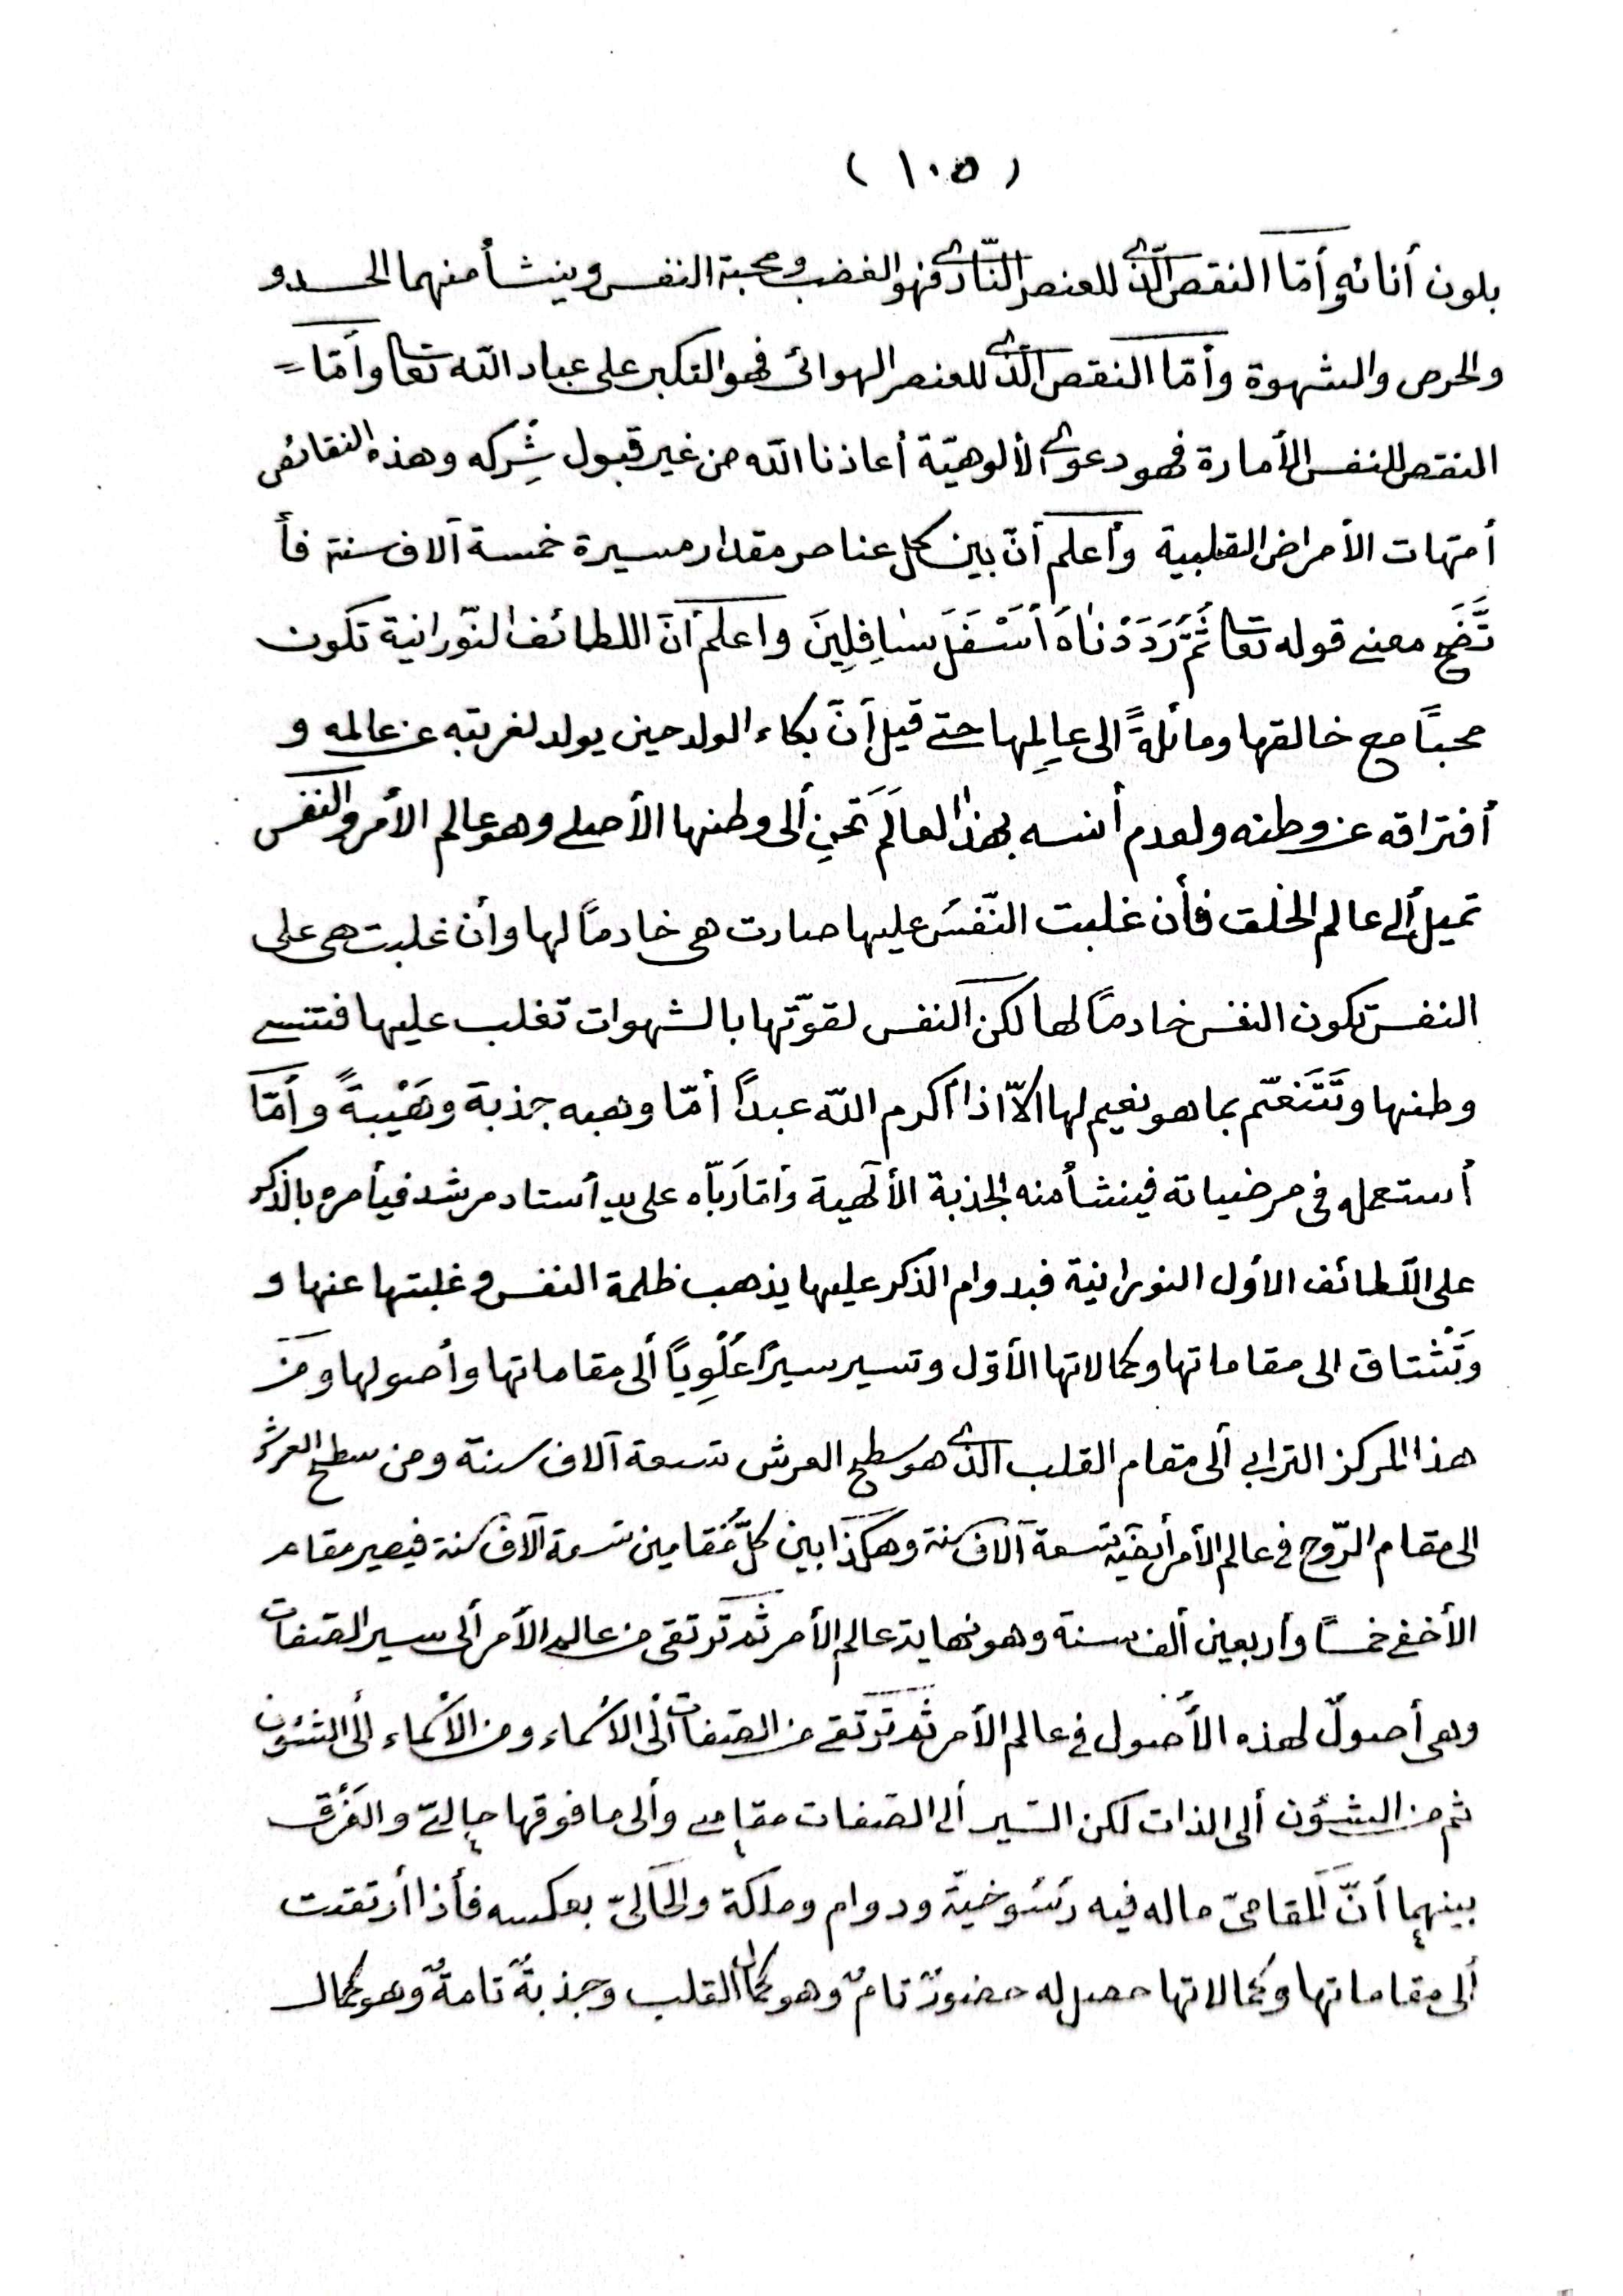 ( ١٠٥ )
بلون أنائه وأمّا النقص الّذى للعنصر النّارى فهو الغضب ومحبة النفس وينشأ منهما الحسد و
والحرص والشهوة وأمّا النقص الّذى للعنصر الهوائى فهو التكبر على عباد اللّه تعا وأمّا =
النقص للنفس الأمارة فهو دعوى الألوهيّة أعاذنا اللّه من غير قبول شِركه وهذه النقائص
أمّهات الأمراض القلبية وأعلم أنّ بين كل عناصر مقدار مسيرة خمسة آلاف سنة فأ
تَّضَح معنى قوله تعا ثُمَّ رَدَدْنٰاهُ أَسْفَلَ سٰافِلِينَ واعلم أنّ اللطائف النّورانية تكون
محبتًا مع خالقها ومائلةً الى عالِمها حتى قيل أنّ بكاء الولد حين يولد لغربته عن عالمه و
أفتراقه عن وطنه ولعدم أنسه بهذا العالَم تَحنِ ألى وطنها الأصلى وهو عالم الأمر والنفس
تميل ألى عالم الخلق فأن غلبت النّفسُ عليها صارت هى خادمًا لها وأن غلبت هى على
النفس تكون النفس خادمًا لها لكن النفس لقوّتها بالشهوات تغلب عليها فتنسى
وطنها وتَتَنَعّم بما هو نعيم لها الّا اذا أكرم اللّه عبدًا أمّا وهبه جذبة وهَيْبةً وأمّا
أستعمله فى مرضياته فينشأ منه الجذبة الألٓهية وأمّا ربّاه على يد أستاد مرشد فيأمره بالذكر
على اللّطائف الأول النورانية فبدوام الذكر عليها يذهب ظلمة النفس وغلبتها عنها و
وَتَشْتاق الى مقاماتها وكمالاتها الأوّل وتسير سيرًا عُلْوِيًا ألى مقاماتها وأصولها ومن
هذا المركز الترابى ألى مقام القلب الذى هو سطح العرش تسعة آلاف سنة ومن سطح العرش
الى مقام الرّوح فى عالم الأمر أيضًا تسعة آلاف سنة وهكذا بين كلّ مُقامين تسعة آلاف سنة فيصير مقام
الأخفى خمسًا وأربعين ألف سنة وهو نهاية عالم الأمر ثم ترتقى من عالم الأمر ألى سير الصّفات
وهى أصولٌ لهذه الأصول فى عالم الأمر ثم ترتقى من الصّفات ألى الأسماء ومن الأسماء ألى الشئون
ثم من الشئون ألى الذات لكن السّير ألى الصّفات مقامى وألى ما فوقها حالىّ والفَرْق
بينهما أنّ المقامىّ ماله فيه رسُوخيّة ودوام وملكة والحَالىّ بعكسه فأذا أرتقت
ألى مقاماتها وكمالاتها حصل له حضورٌ تامٌ وهو كمال القلب وجذبةٌ تامةٌ وهو كمال